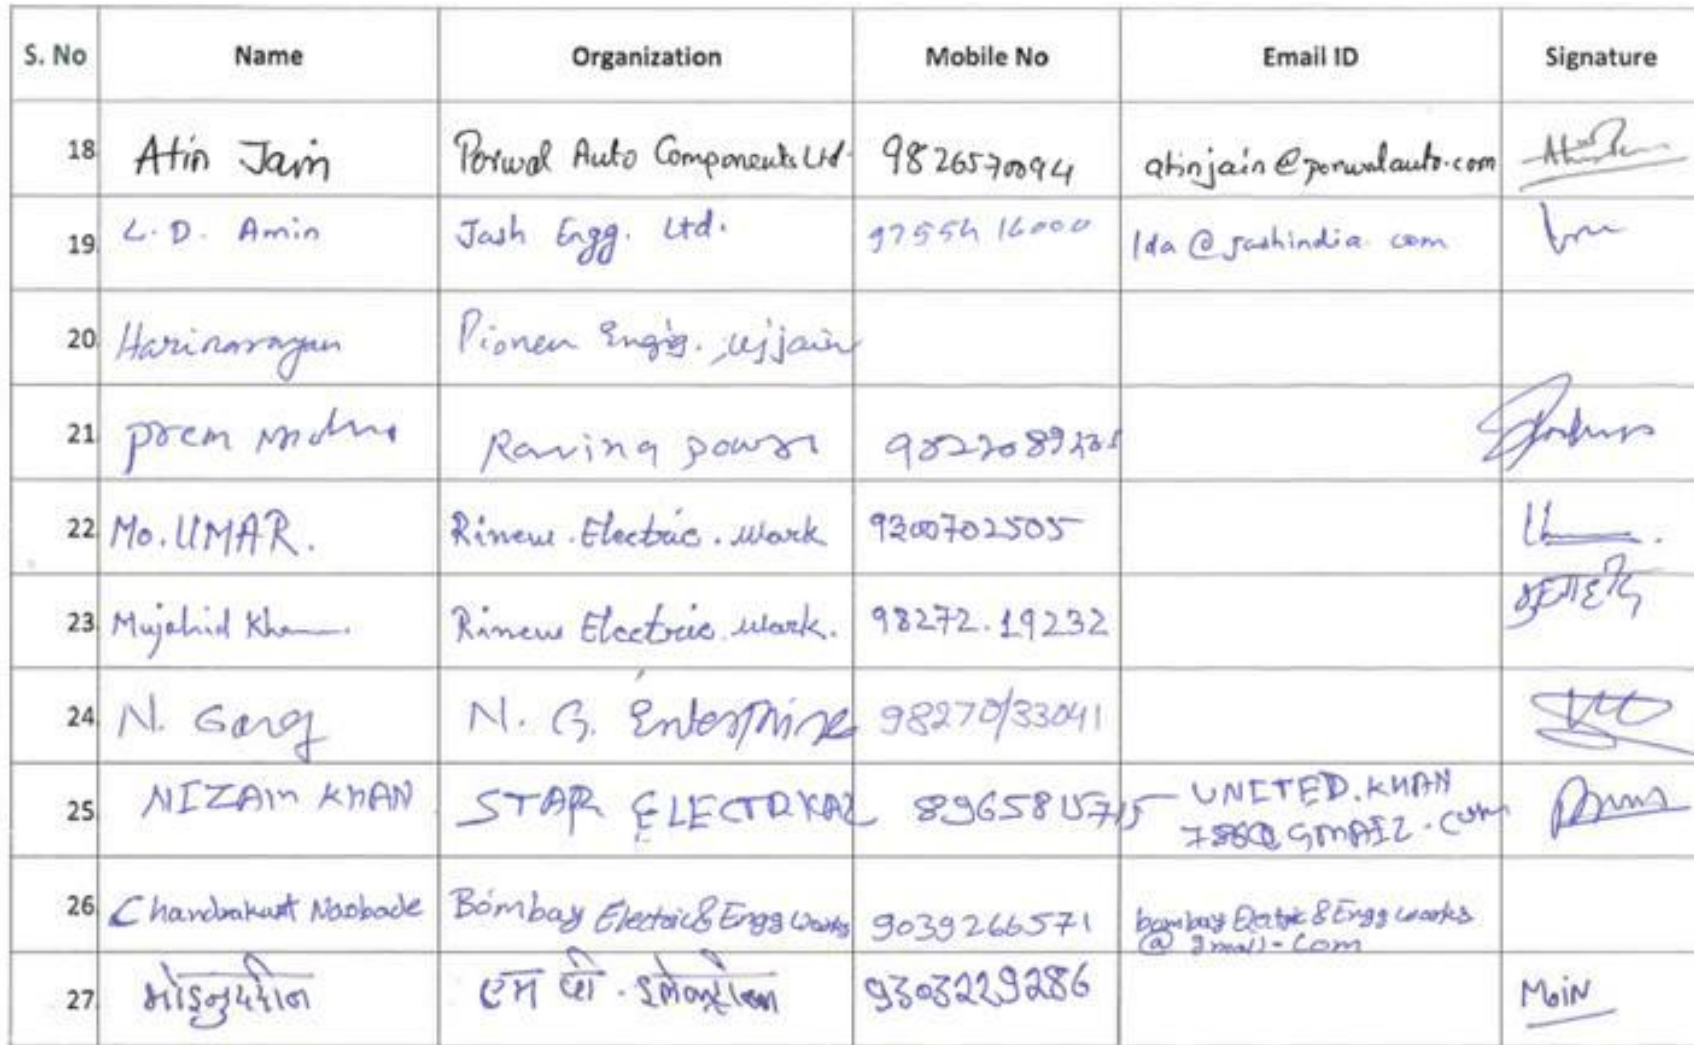 S. No Name Organization Mobile No Email ID Signature
18 Atin Jain Porwal Auto Components Ltd. 9826570094 atinjain@porwalauto.com
19 L.D. Amin Jash Engg. Ltd. 97554 16000 lda@jashindia.com
20 Harinarayan Pioneer Engg. Ujjain
21 prem Raving power
22 Mo. UMAR. Rinew. Electric. Work 9300702505
23 Mujahid Khan. Rinew Electric. Work. 98272.19232
24 N. Garg N. G. Enterprise 98270/33041
25 NIZAM KHAN STAR ELECTRKAL 8965815715 UNITED.KHAN
786@GMAIL.COM
26 Chandrakant Naobade Bombay Electric & Engg Works 9039266571 bombay Eletric & Engg works
@ gmail-com
27 मोइनुददीन एम पी . 9303229286 MoiN